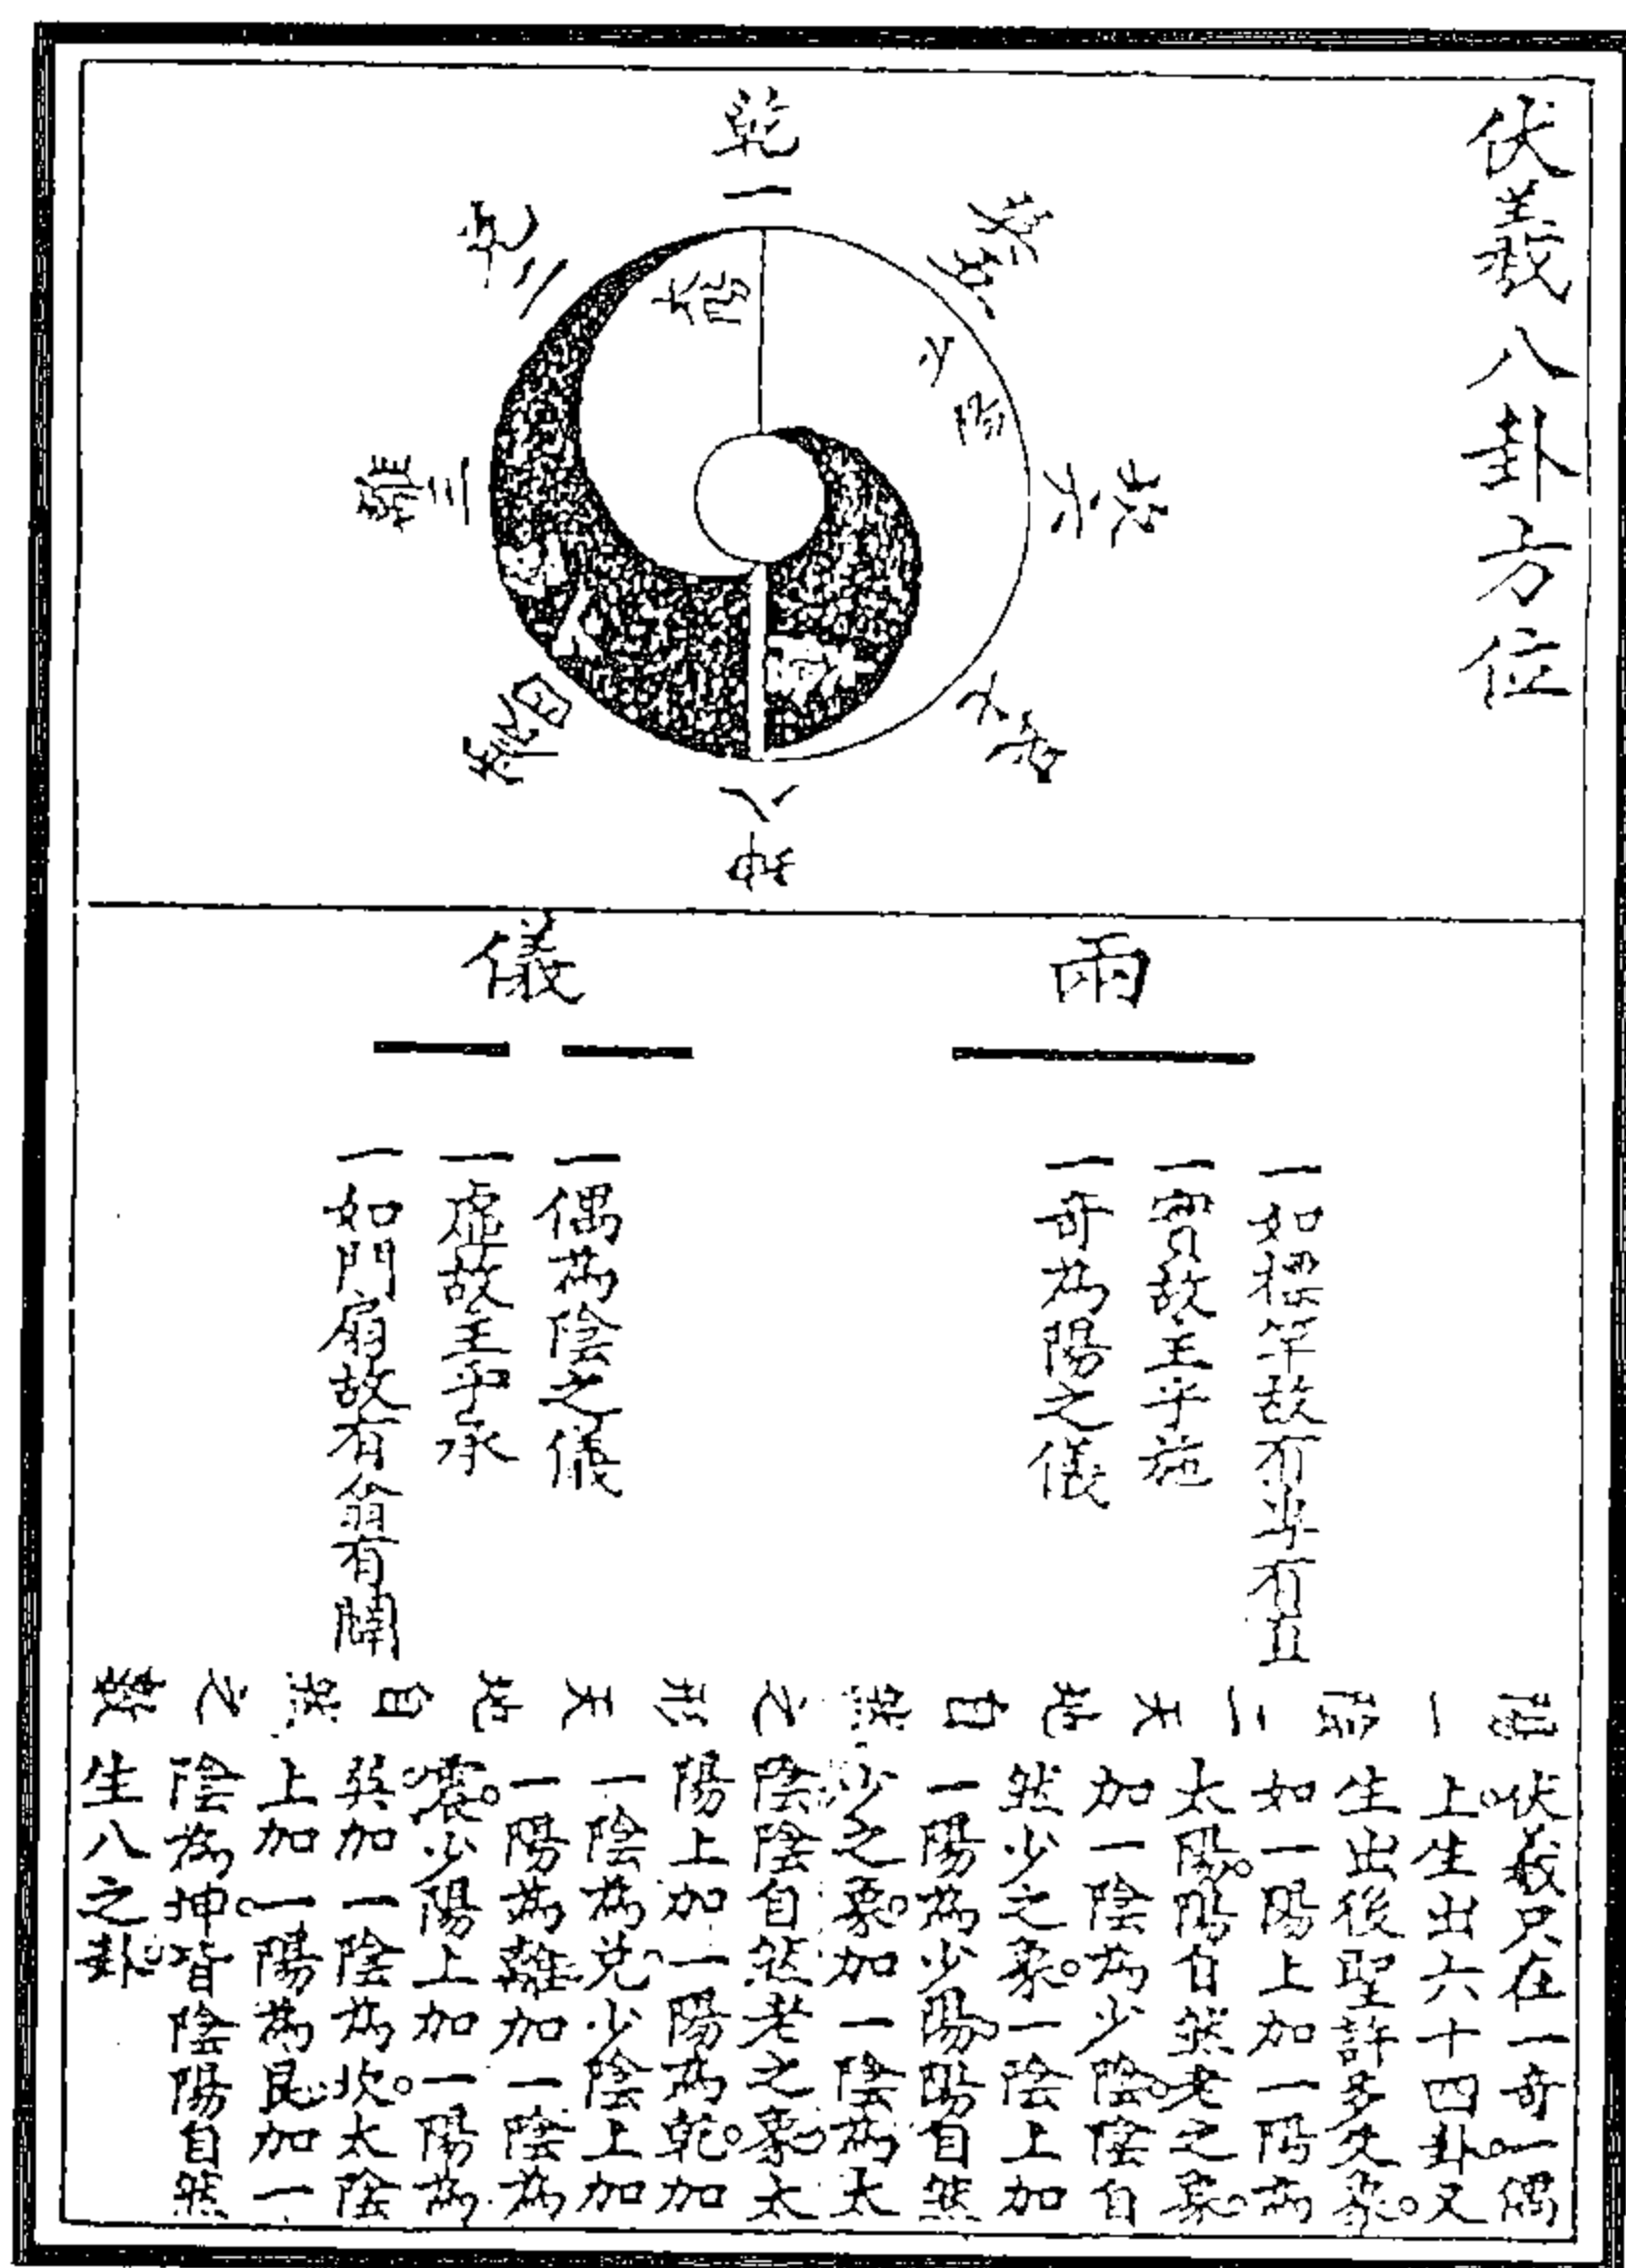 伏羲八卦方位
乾一
兌二
離三
震四
巽五
坎六
艮七
坤八
太陽
少陰
少陽
太陰
兩儀
一如標竿故有專有直
一實故主乎施
一奇為陽之儀
一偶為陰之儀
一虛故主乎承
一如門扇故有翕有闢
陽一陰二天地自然之形天地自然之數
伏羲只在一奇一偶
上生出六十四卦又
生出後聖許多爻象
如一陽上加一陽為
太陽陽自然老之象
加一陰為少陰陰自
然少之象一陰上加
一陽為少陽陽自然
少之象加一陰為太
陰陰自然老之象太
陽上加一陽為乾加
一陰為兌少陰上加
一陽為離加一陰為
震少陽上加一陽為
巽加一陰為坎太陰
上加一陽為艮加一
陰為坤皆陰陽自然
生八之卦